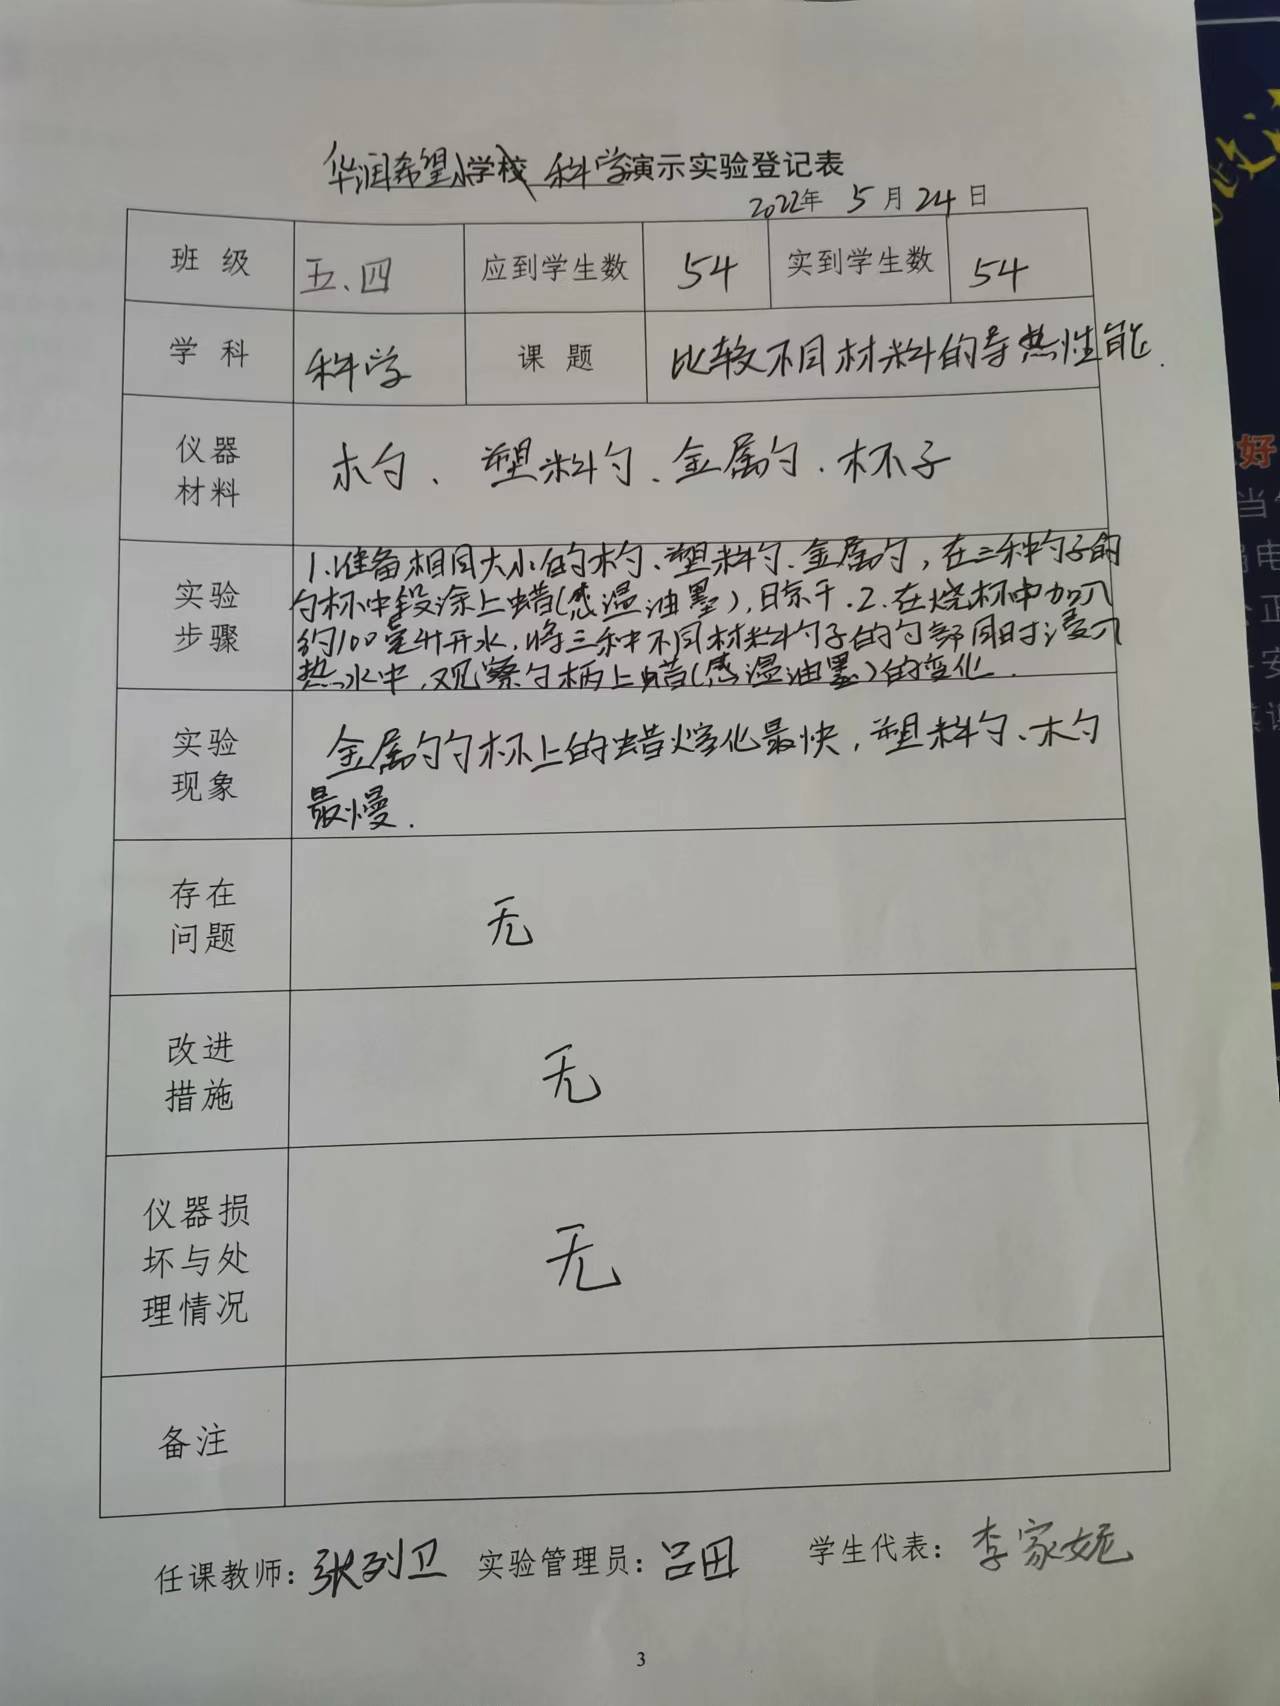 华润希望小学校 科学演示实验登记表
2022年 5月24日
班级 五、四 应到学生数 54 实到学生数 54
学科 科学 课题 比较不同材料的导热性能.
仪器
材料
木勺、塑料勺、金属勺、杯子
实验
步骤
1.准备相同大小的木勺、塑料勺、金属勺,在三种勺子的
勺杯中段涂上蜡(感温油墨),晾干.2.在烧杯中加入
约100毫升开水,将三种不同材料勺子的勺部同时浸入
热水中,观察勺柄上蜡(感温油墨)的变化.
实验
现象
金属勺勺杯上的蜡熔化最快,塑料勺、木勺
最慢.
存在
问题
无
改进
措施
无
仪器损
坏与处
理情况
无
备注
任课教师:张列卫 实验管理员:吕田 学生代表:李家妮
3
好